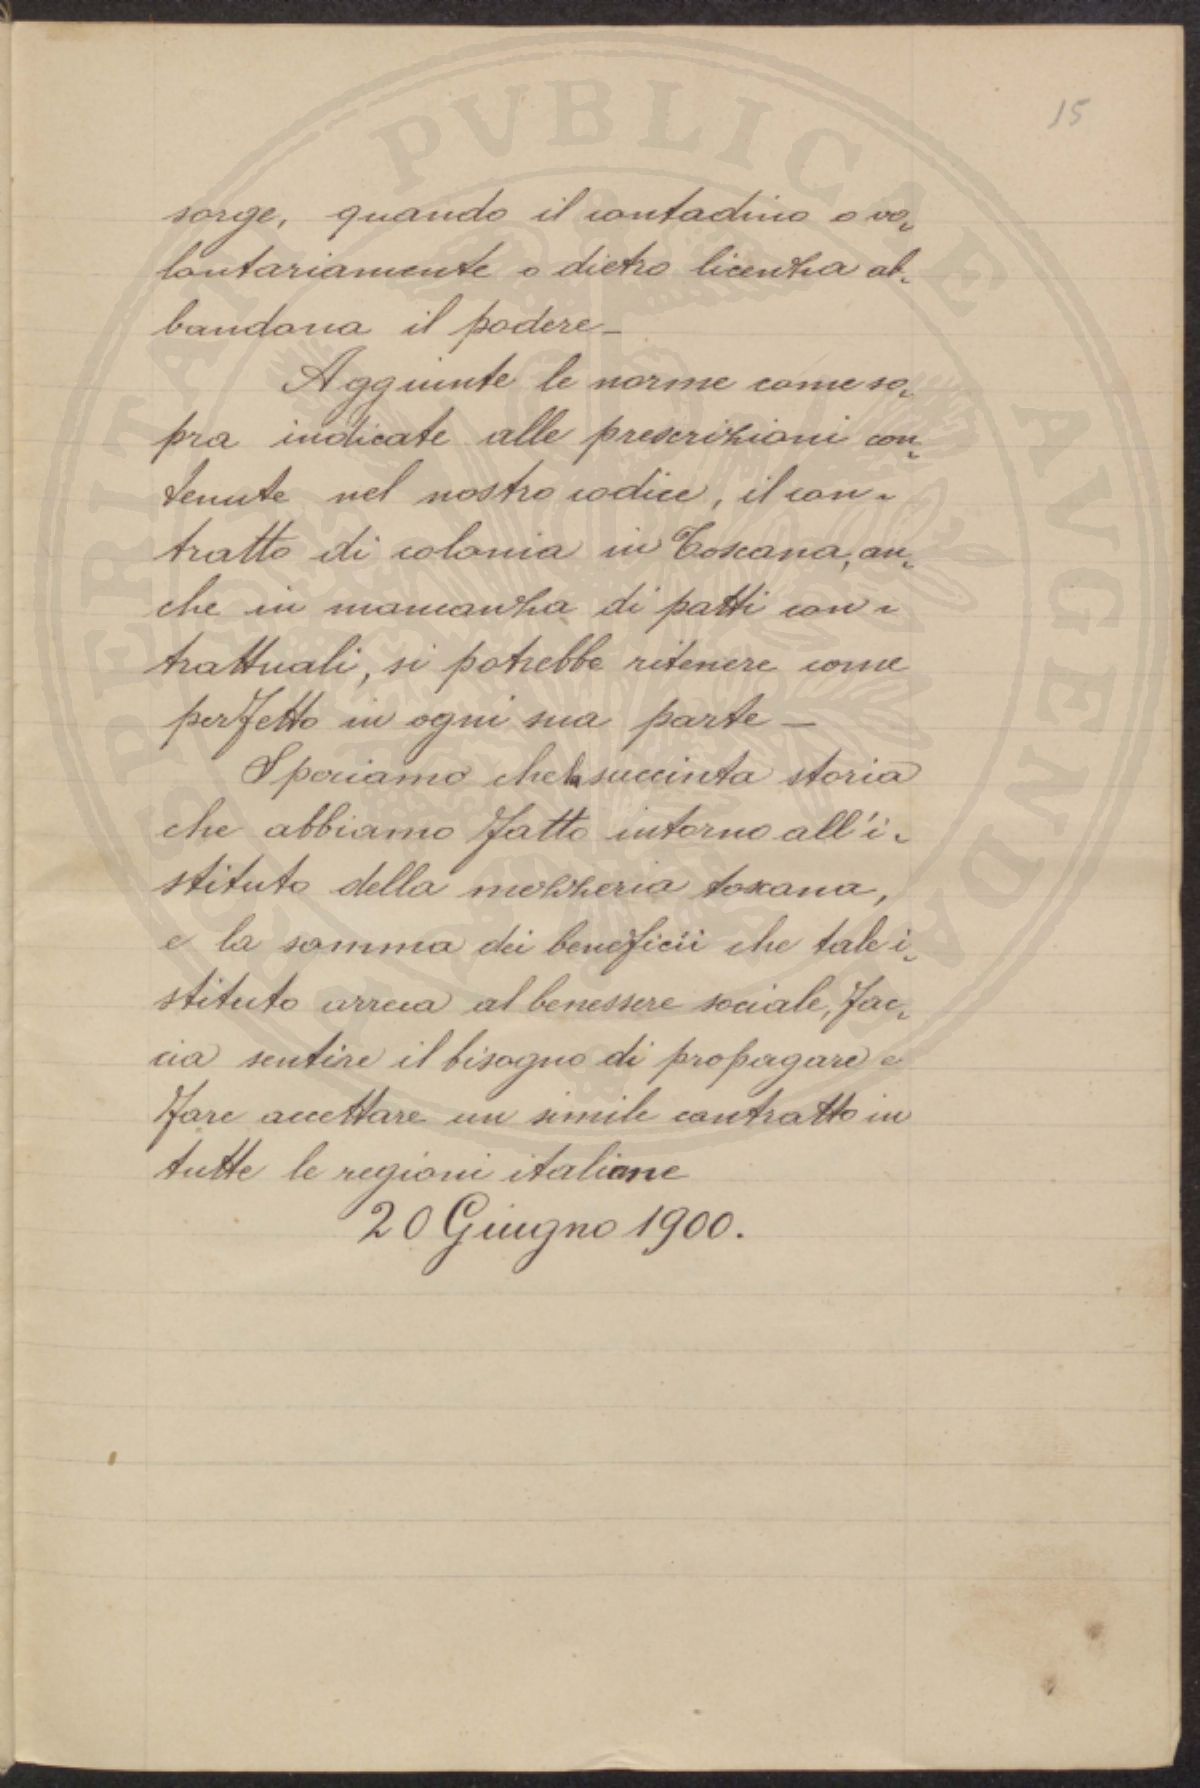 15
sorge, quando il contadino o vo-
lontariamente o dietro licenza ab-
bandona il podere –
Aggiunte le norme come so-
pra indicate alle prescrizioni con-
tenute nel nostro codice, il con-
tratto di colonia in Toscana, an-
che in mancanza di patti con-
trattuali, si potrebbe ritenere come
perfetto in ogni sua parte –
Speriamo che la succinta storia
che abbiamo fatto intorno all'i-
stituto della mezzeria toscana,
e la somma dei beneficii che tale i-
stituto arreca al benessere sociale, fac-
cia sentire il bisogno di propagare e
fare accettare un simile contratto in
tutte le regioni italiane
20 Giugno 1900.